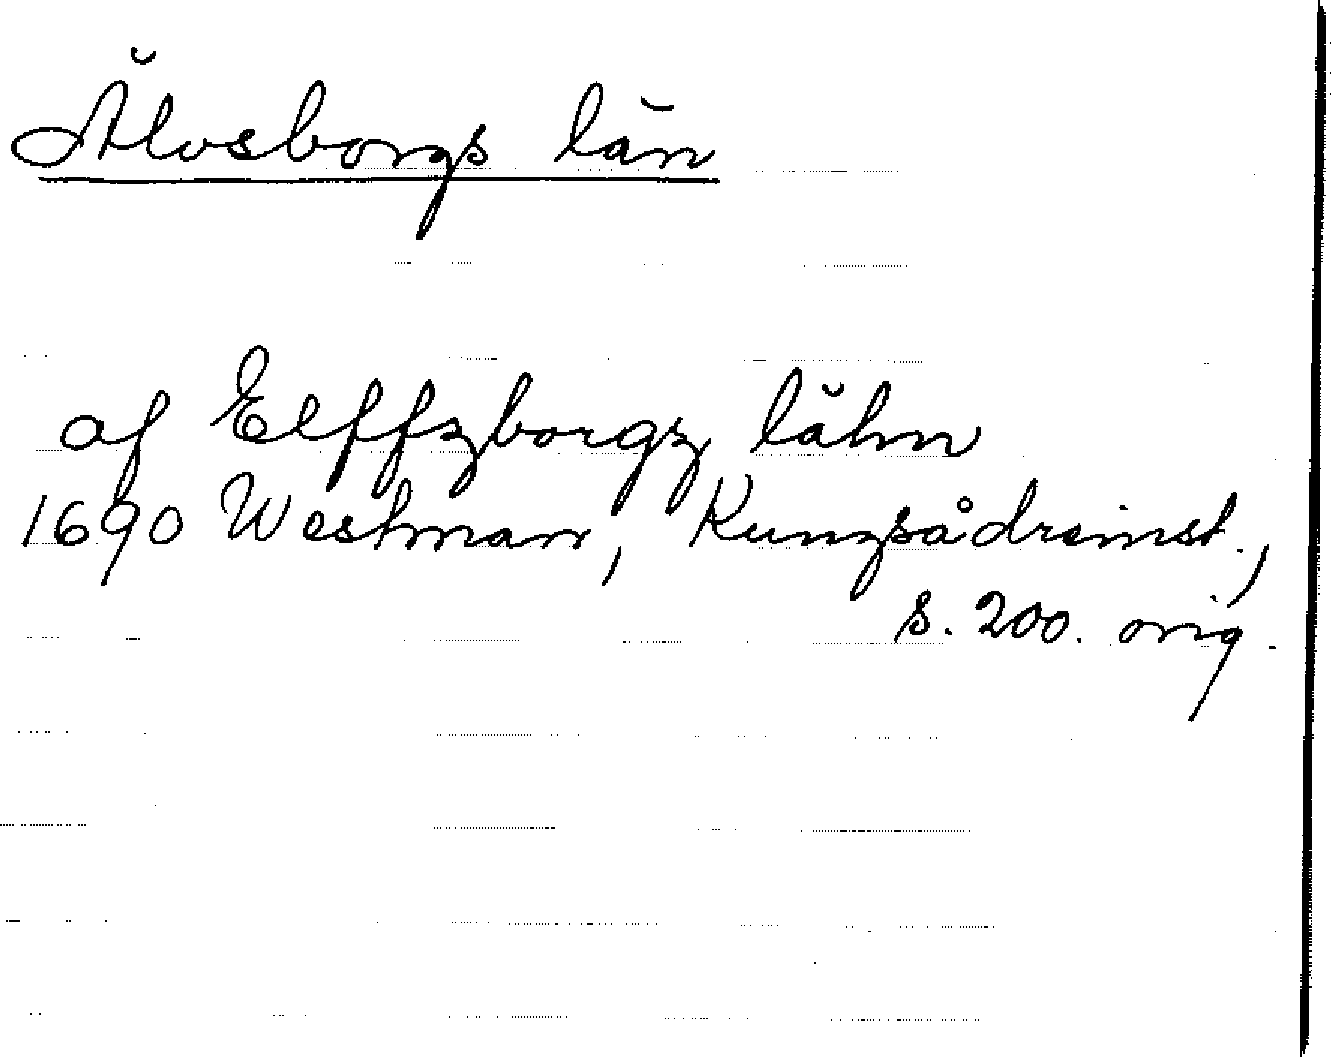 Älvsborgs län
af Elffzborgz lähn
1690 Westman, Kungsådreinst.,
s. 200. orig.